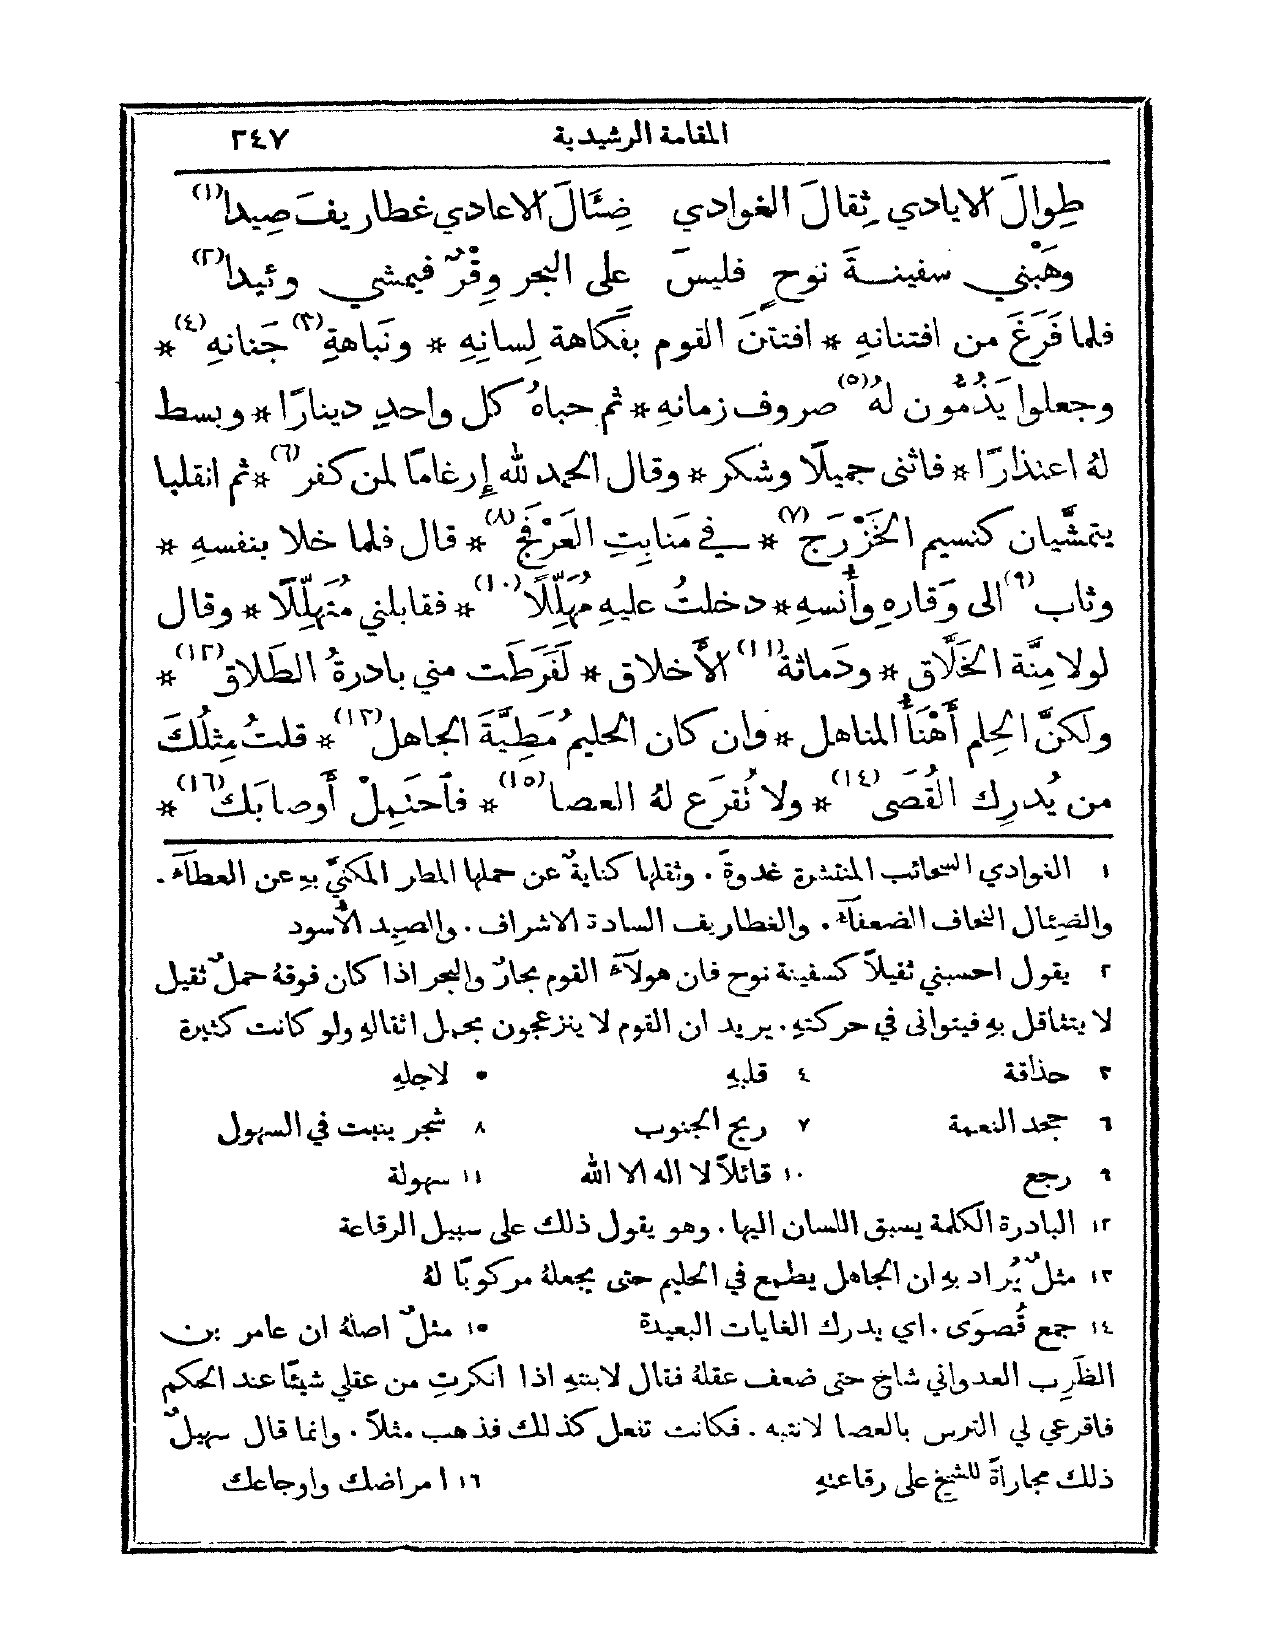 المقامة الرشيدية ٢٤٧
طِوالَ الايادي ثِقالَ الغوادي ضِئَالَ الاعادي غطاريفَ صِيدا(١)
وهَبْني سفينةَ نوحٍ فليسَ على البحر وِقْرٌ فيمشي وئيدا(٢)
فلما فَرَغَ من افتنانهِ * افتتنَ القوم بفَكاهة لِسانِهِ * ونَباهةِ(٣) جَنانهِ(٤) *
وجعلوا يَذُمُّون لهُ(٥) صروف زمانهِ * ثم حباهُ كل واحدٍ دينارًا * وبسط
لهُ اعتذارًا * فاثنى جميلًا وشكر * وقال الحمد لله إِرغامًا لمن كفر(٦) * ثم انقلبا
يتمشَّيان كنسيم الخَزْرَج(٧) * في مَنابِتِ العَرْفَج(٨) * قال فلما خلا بنفسهِ *
وثاب(٩) الى وَقارهِ وأُنسهِ * دخلتُ عليهِ مُهلِّلًا(١٠) * فقابلني مُتهلِّلًا * وقال
لولا مِنَّة الخَلَّاق * ودَماثة(١١) الأَخلاق * لَفَرَطَت مني بادرةُ الطَّلاق(١٢) *
ولكنَّ الحِلم أَهْنَأُ المناهل * وان كان الحليمُ مَطِيَّةَ الجاهل(١٣) * قلتُ مِثلُكَ
من يُدرِك القُصَى(١٤) * ولا تُقرَع لهُ العصا(١٥) * فاَحتَمِلْ أَوصابَك(١٦) *
١ الغوادي السحائب المنتشرة غدوةً . وثقلها كنايةٌ عن حملها المطر المكنيّ بهِ عن العطآء .
والضِئال النحاف الضعفآء . والغطاريف السادة الاشراف . والصِيد الأُسود
٢ يقول احسبني ثقيلاً كسفينة نوح فان هولآء القوم بحارٌ والبحر اذا كان فوقهُ حملٌ ثقيل
لا يتثاقل بهِ فيتوانى في حركتهِ . يريد ان القوم لا ينزعجون بحمل اثقالهِ ولو كانت كثيرة
٣ حذاقة ٤ قلبهِ ٥ لاجلهِ
٦ جحد النعمة ٧ ريح الجنوب ٨ شجر ينبت في السهول
٩ رجع ١٠ قائلاً لا اله الا الله ١١ سهولة
١٢ البادرة الكلمة يسبق اللسان اليها . وهو يقول ذلك على سبيل الرقاعة
١٣ مثلٌ يُراد بهِ ان الجاهل يطمع في الحليم حتى يجعلهُ مركوبًا لهُ
١٤ جمع قُصوَى . اي يدرك الغايات البعيدة ١٥ مثلٌ اصلهُ ان عامر بن
الظَرِب العدوانيّ شاخ حتى ضعف عقلهُ فقال لابنتهِ اذا انكرتِ من عقلي شيئًا عند الحكم
فاقرعي لي الترس بالعصا لانتبه . فكانت تفعل كذلك فذهب مثلاً . وانما قال سهيلٌ
ذلك مجاراةً للشيخ على رقاعتهِ ١٦ امراضك واوجاعك